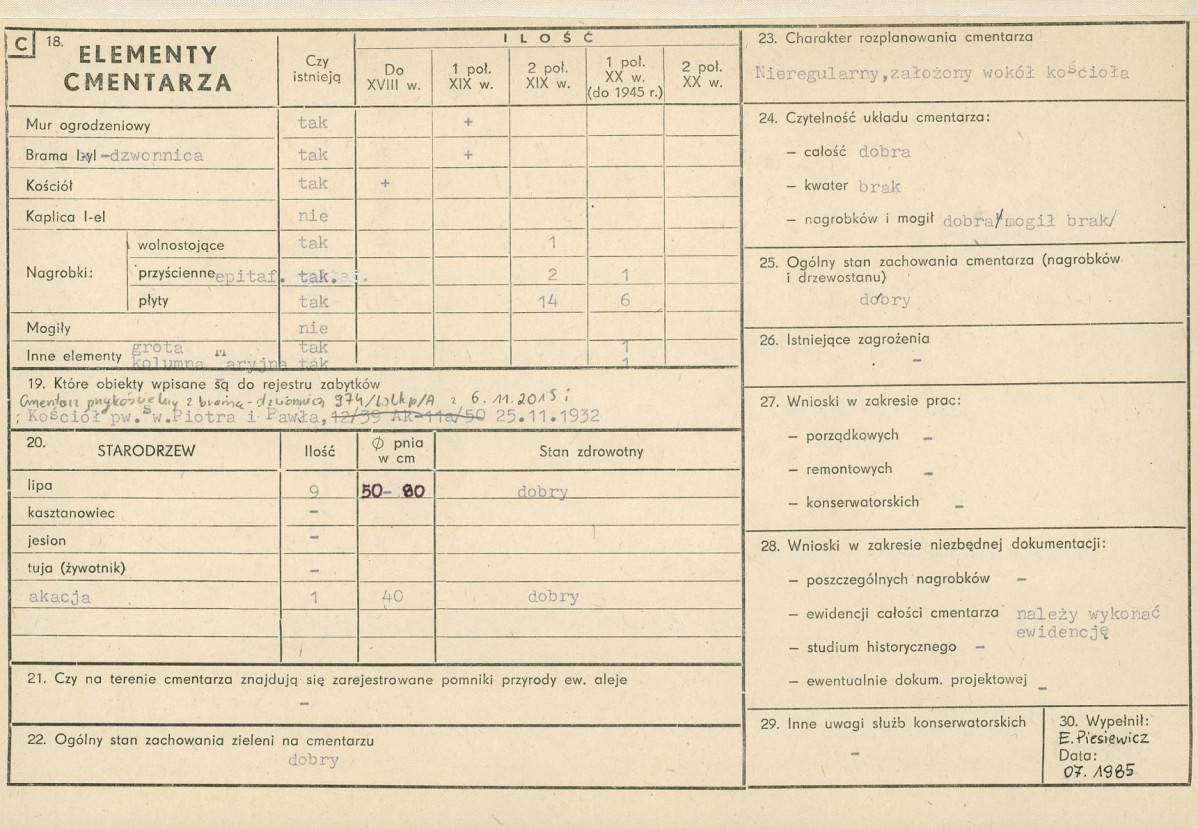 C 18. ELEMENTY CMENTARZA
Czy istnieją
ILOŚĆ
Do XVIII w.
1 poł. XIX w.
2 poł. XIX w.
1 poł. XX w. (do 1945 r.)
2 poł. XX w.
Mur ogrodzeniowy tak +
Brama -dzwonnica tak +
Kościół tak +
Kaplica I-el nie
Nagrobki:
wolnostojące tak 1
przyścienne epitaf. tak. 2 1
płyty tak 14 6
Mogiły nie
Inne elementy grota tak 1
kolumna maryjna tak 1
19. Które obiekty wpisane są do rejestru zabytków
Cmentarz przykościelny z bramą-dzwonnicą 974/Wlkp/A z 6.11.2015 i
: Kościół pw. św.Piotra i Pawła, 12/39 AK-11a/50 25.11.1932
20. STARODRZEW
Ilość
Ø pnia w cm
Stan zdrowotny
lipa 9 50-80 dobry
kasztanowiec -
jesion -
tuja (żywotnik) -
akacja 1 40 dobry
21. Czy na terenie cmentarza znajdują się zarejestrowane pomniki przyrody ew. aleje
-
22. Ogólny stan zachowania zieleni na cmentarzu
dobry
23. Charakter rozplanowania cmentarza
Nieregularny,założony wokół kościoła
24. Czytelność układu cmentarza:
– całość dobra
– kwater brak
– nagrobków i mogił dobra/mogił brak/
25. Ogólny stan zachowania cmentarza (nagrobków
i drzewostanu)
dobry
26. Istniejące zagrożenia
-
27. Wnioski w zakresie prac:
– porządkowych -
– remontowych -
– konserwatorskich -
28. Wnioski w zakresie niezbędnej dokumentacji:
– poszczególnych nagrobków -
– ewidencji całości cmentarza należy wykonać
ewidencję
– studium historycznego -
– ewentualnie dokum. projektowej -
29. Inne uwagi służb konserwatorskich
-
30. Wypełnił:
E.Piesiewicz
Data:
07.1985